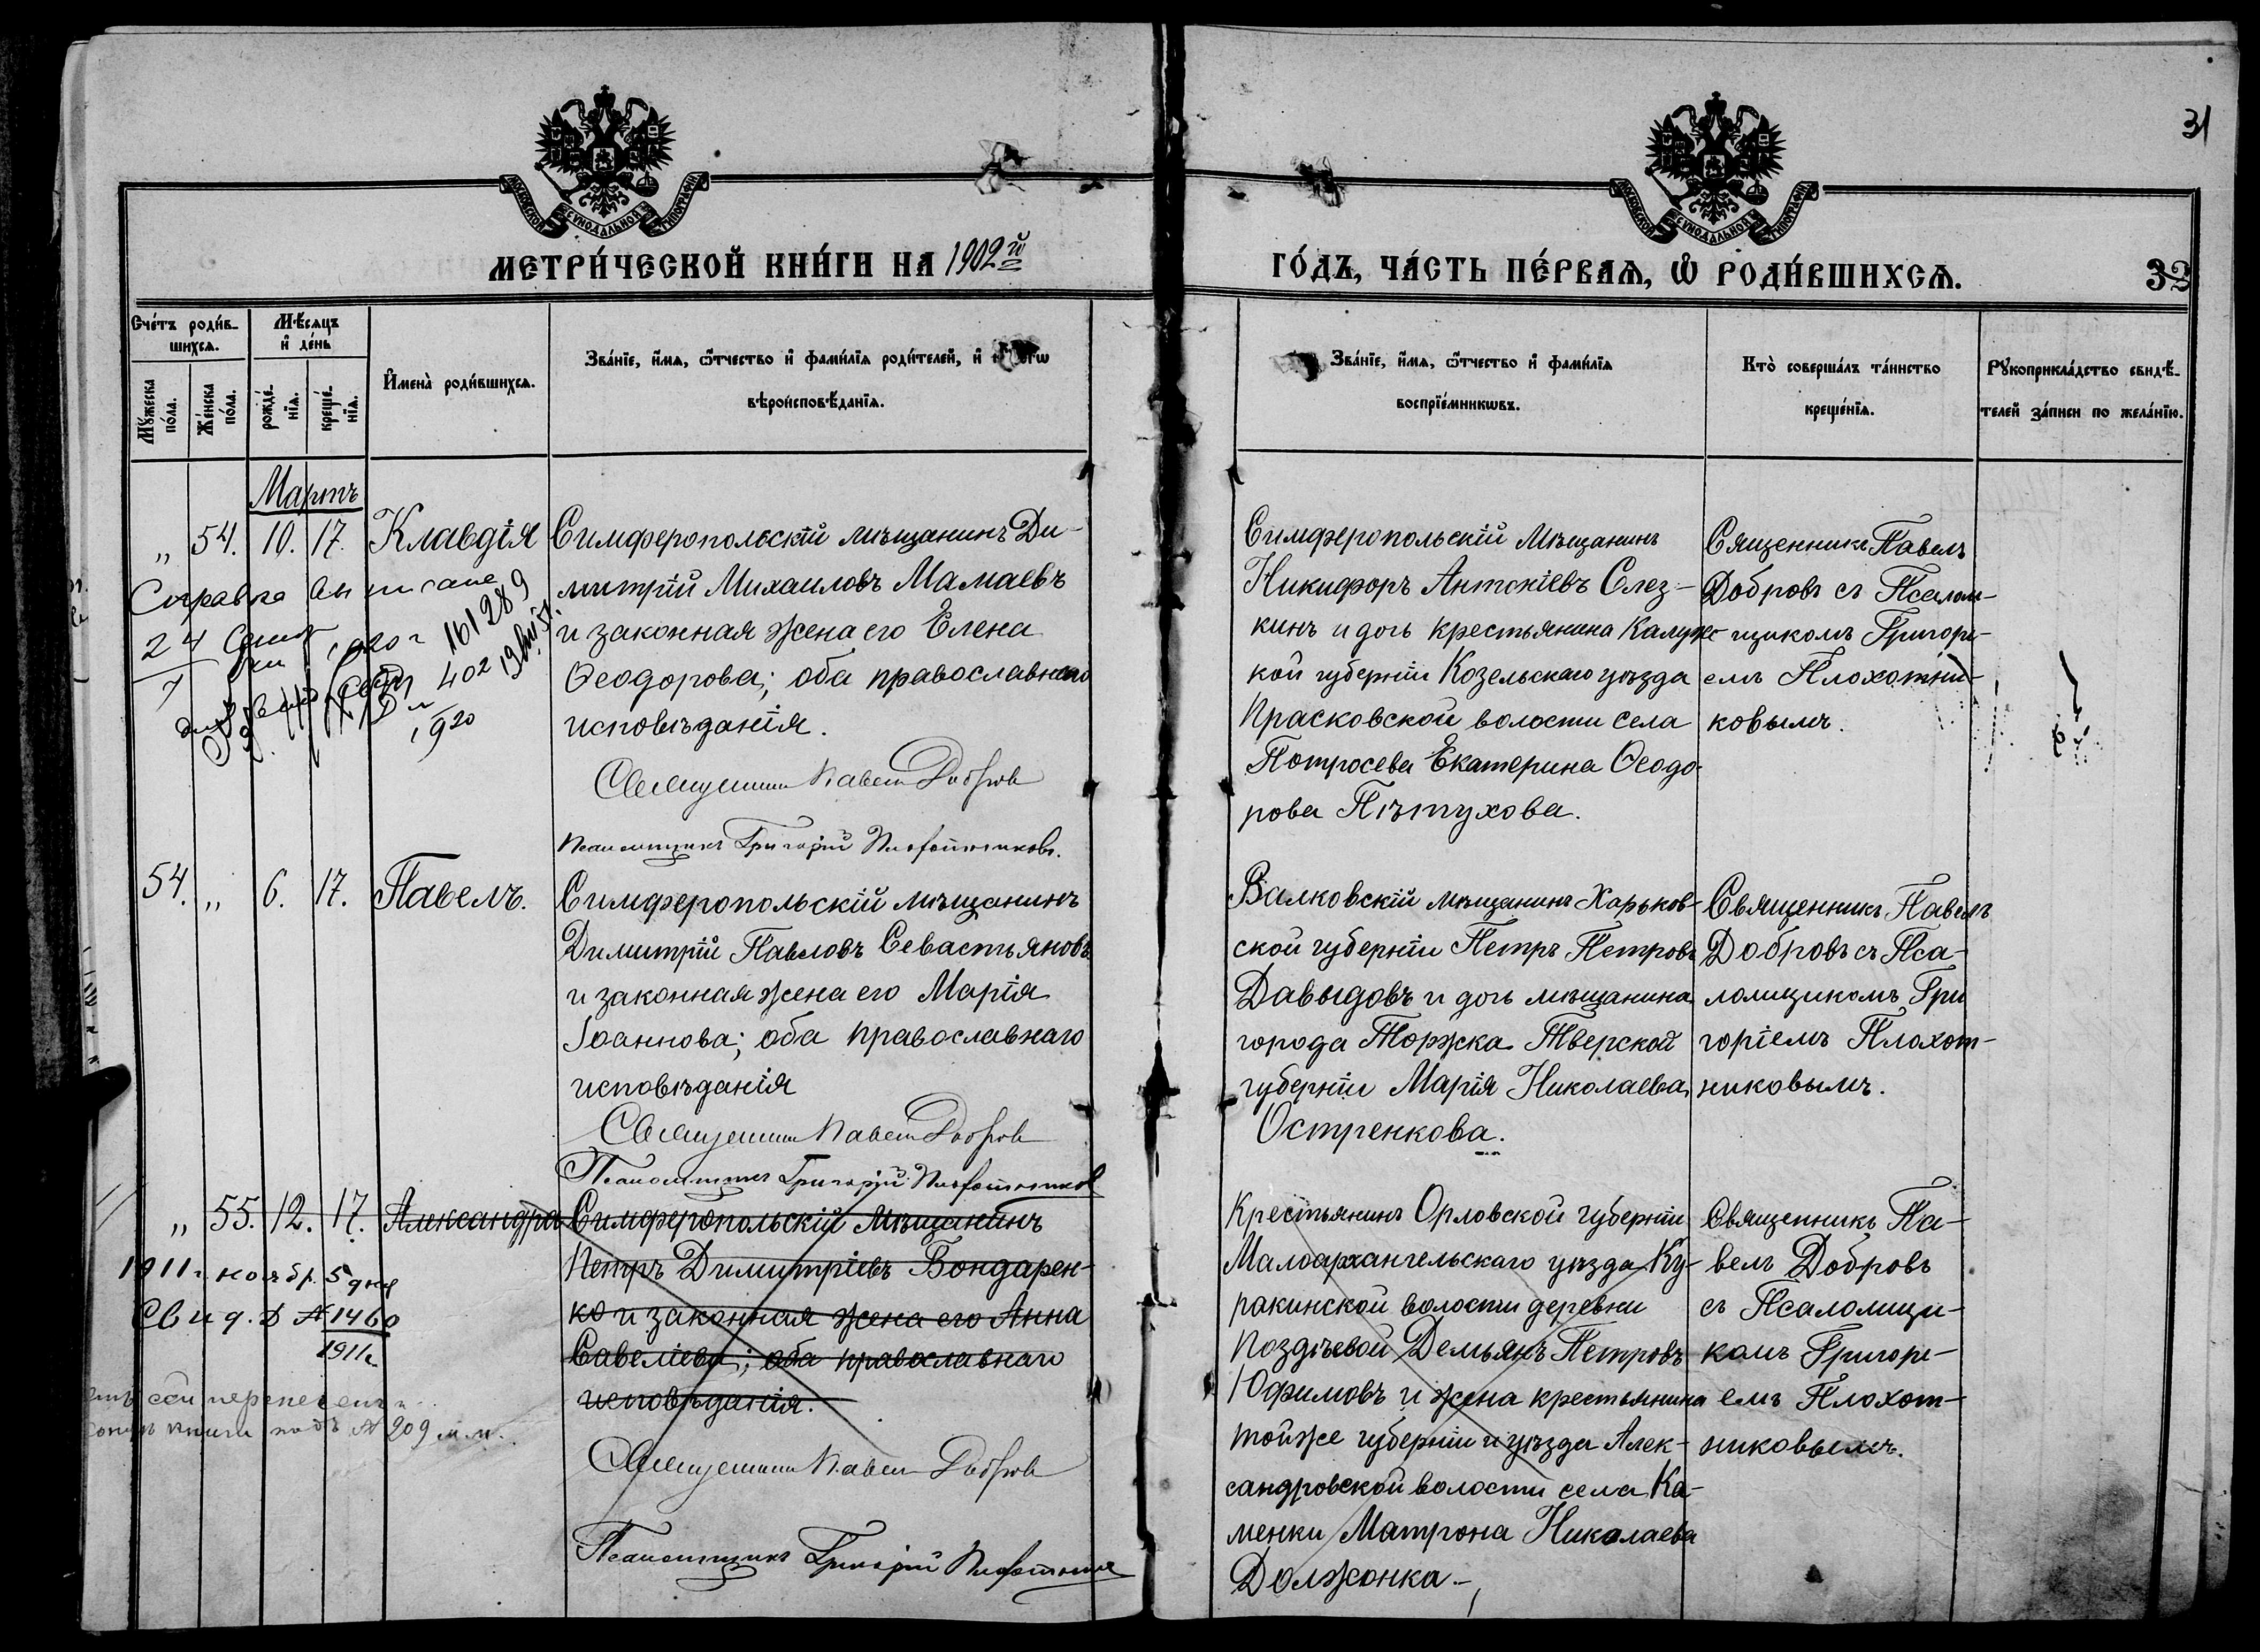 31
МОСКОВСКОЙ СѴНОДАЛЬНОЙ ТИПОГРАФІИ
МОСКОВСКОЙ СѴНОДАЛЬНОЙ ТИПОГРАФІИ
МЕТРИ́ЧЕСКОЙ КНИ́ГИ НА 1902й
ГО́ДЪ, ЧА́СТЬ ПЕ́РВАѦ, Ѡ РОДИ́ВШИХСѦ.
32
Сче́тъ роди́в-
шихсѧ.
Мѣ́сѧцъ
и҆ де́нь
Мꙋ́жеска
по́ла.
Же́нска
по́ла.
рожде́-
нїѧ.
креще́-
нїѧ.
И҆мена̀ роди́вшихсѧ.
Зва́нїе, и҆́мѧ, ѻ҆́тчество и҆ фами́лїѧ роди́телей, и҆
вѣроисповѣ́данїѧ.
Зва́нїе, и҆́мѧ, ѻ҆́тчество и҆ фами́лїѧ
воспрїе́мникѡвъ.
Кто̀ соверша́лъ та́инство
креще́нїѧ.
Рꙋкоприкла́дство свидѣ́-
телей за́писи по жела́нїю.
Мартъ
„ 54. 10. 17. Клавдія
Симферопольскій мѣщанинъ Ди-
митрій Михаиловъ Мамаевъ
и законная жена его Елена
Ѳеодорова; оба православнаго
исповѣданія.
Священникъ Павелъ Добровъ
Псаломщикъ Григорій Плохотниковъ.
Справка
24
1920 г 161289
402
1920
Симферопольскій мѣщанинъ
Никифоръ Антоніевъ Слез-
кинъ и дочь крестьянина Калужс
кой губерніи Козельскаго уѣзда
Прасковской волости села
Потросева Екатерина Ѳеодо-
рова Пѣтухова.
Священникъ Павелъ
Добровъ съ Псалом-
щикомъ Григорі-
емъ Плохотни-
ковымъ.
54. „ 6. 17. Павелъ.
Симферопольскій мѣщанинъ
Димитрій Павловъ Севастьяновъ
и законная жена его Марія
Іоаннова; оба православнаго
исповѣданія
Священникъ Павелъ Добровъ
Псаломщикъ Григорій Плохотниковъ
Валковскій мѣщанинъ Харьков-
ской губерніи Петръ Петровъ
Давыдовъ и дочь мѣщанина
города Торжка Тверской
губерніи Марія Николаева
Остренкова.
Священникъ Павелъ
Добровъ съ Пса-
ломщикомъ Гри
горіемъ Плохот-
никовымъ.
„ 55. 12. 17. Александра
Симферопольскій Мѣщанинъ
Петръ Димитріевъ Бондарен-
ко и законная жена его Анна
Савеліева; оба православнаго
исповѣданія.
Священникъ Павелъ Добровъ
Псаломщикъ Григорій Плохотниковъ
1911 г. ноябр. 5 дня
Свид. Д № 1460
1911 г.
сей перенесенъ
книги подъ № 209 м.п.
Крестьянинъ Орловской губерніи
Малоархангельскаго уѣзда Ку-
ракинской волости деревни
Поздѣевой Демьянъ Петровъ
Юфимовъ и жена крестьянина
тойже губерніи и уѣзда Алек-
сандровской волости села Ка-
менки Матрона Николаева
Должонка.-
Священникъ Па-
велъ Добровъ
съ Псаломщи-
комъ Григорі-
емъ Плохот-
никовымъ.